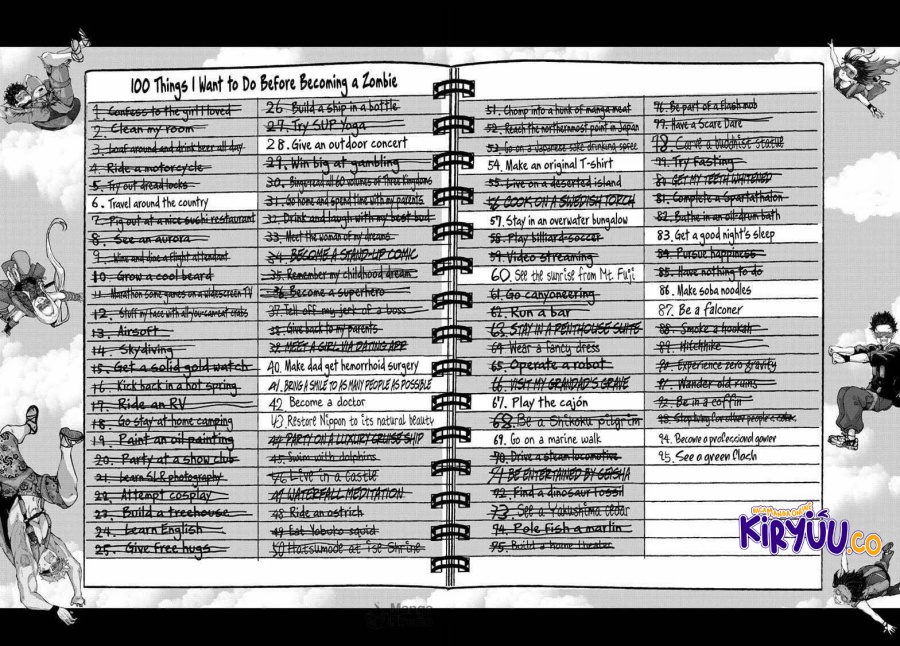 100 Things I Want to Do Before Becoming a Zombie
1. Confess to the girl I loved
2. Clean my room
3. Loaf around and drink beer all day
4. Ride a motorcycle
5. Try out dreadlocks
6. Travel around the country
7. Pig out at a nice sushi restaurant
8. See an aurora
9. Wine and dine a flight attendant
10. Grow a cool beard
11. Marathon some games on a widescreen TV
12. Stuff my face with all-you-can-eat crabs
13. Airsoft
14. Skydiving
15. Get a solid gold watch
16. Kick back in a hot spring
17. Ride an RV
18. Go stay at home camping
19. Paint an oil painting
20. Party at a show club
21. Learn SLR photography
22. Attempt cosplay
23. Build a treehouse
24. Learn English
25. Give free hugs
26. Build a ship in a bottle
27. Try SUP Yoga
28. Give an outdoor concert
29. Win big at gambling
30. Binge-read all 60 volumes of Three Kingdoms
31. Go home and spend time with my parents
32. Drink and laugh with my best bud
33. Meet the woman of my dreams
34. BECOME A STAND-UP COMIC
35. Remember my childhood dream
36. Become a superhero
37. Tell off my jerk of a boss
38. Give back to my parents
39. MEET A GIRL VIA DATING APP
40. Make dad get hemorrhoid surgery
41. BRING A SMILE TO AS MANY PEOPLE AS POSSIBLE
42. Become a doctor
43. Restore Nippon to its natural beauty
44. PARTY ON A LUXURY CRUISE SHIP
45. Swim with dolphins
46. Live in a castle
47. WATERFALL MEDITATION
48. Ride an ostrich
49. Eat Yobuko squid
50. Hatsumode at Ise Shrine
51. Chomp into a hunk of manga meat
52. Reach the northernmost point in Japan
53. Go on a Japanese sake drinking spree
54. Make an original T-shirt
55. Live on a deserted island
56. COOK ON A SWEDISH TORCH
57. Stay in an overwater bungalow
58. Play billiard soccer
59. Video streaming
60. See the sunrise from Mt. Fuji
61. Go canyoneering
62. Run a bar
63. STAY IN A PENTHOUSE SUITE
64. Wear a fancy dress
65. Operate a robot
66. VISIT MY GRANDAD'S GRAVE
67. Play the cajón
68. Be a Shikoku pilgrim
69. Go on a marine walk
70. Drive a steam locomotive
71. BE ENTERTAINED BY GEISHA
72. Find a dinosaur fossil
73. See a Yakushima cedar
74. Pole fish a marlin
75. Build a home theater
76. Be part of a flash mob
77. Have a Scare Dare
78. Carve a buddhist statue
79. Try Fasting
80. GET MY TEETH WHITENED
81. Complete a Spartathalon
82. Bathe in an oil drum bath
83. Get a good night's sleep
84. Pursue happiness
85. Have nothing to do
86. Make soba noodles
87. Be a falconer
88. Smoke a hookah
89. Hitchhike
90. Experience zero gravity
91. Wander old ruins
92. Be in a coffin
93. Stop living for other people's
94. Become a professional gamer
95. See a green flash
KIRYUU.CO